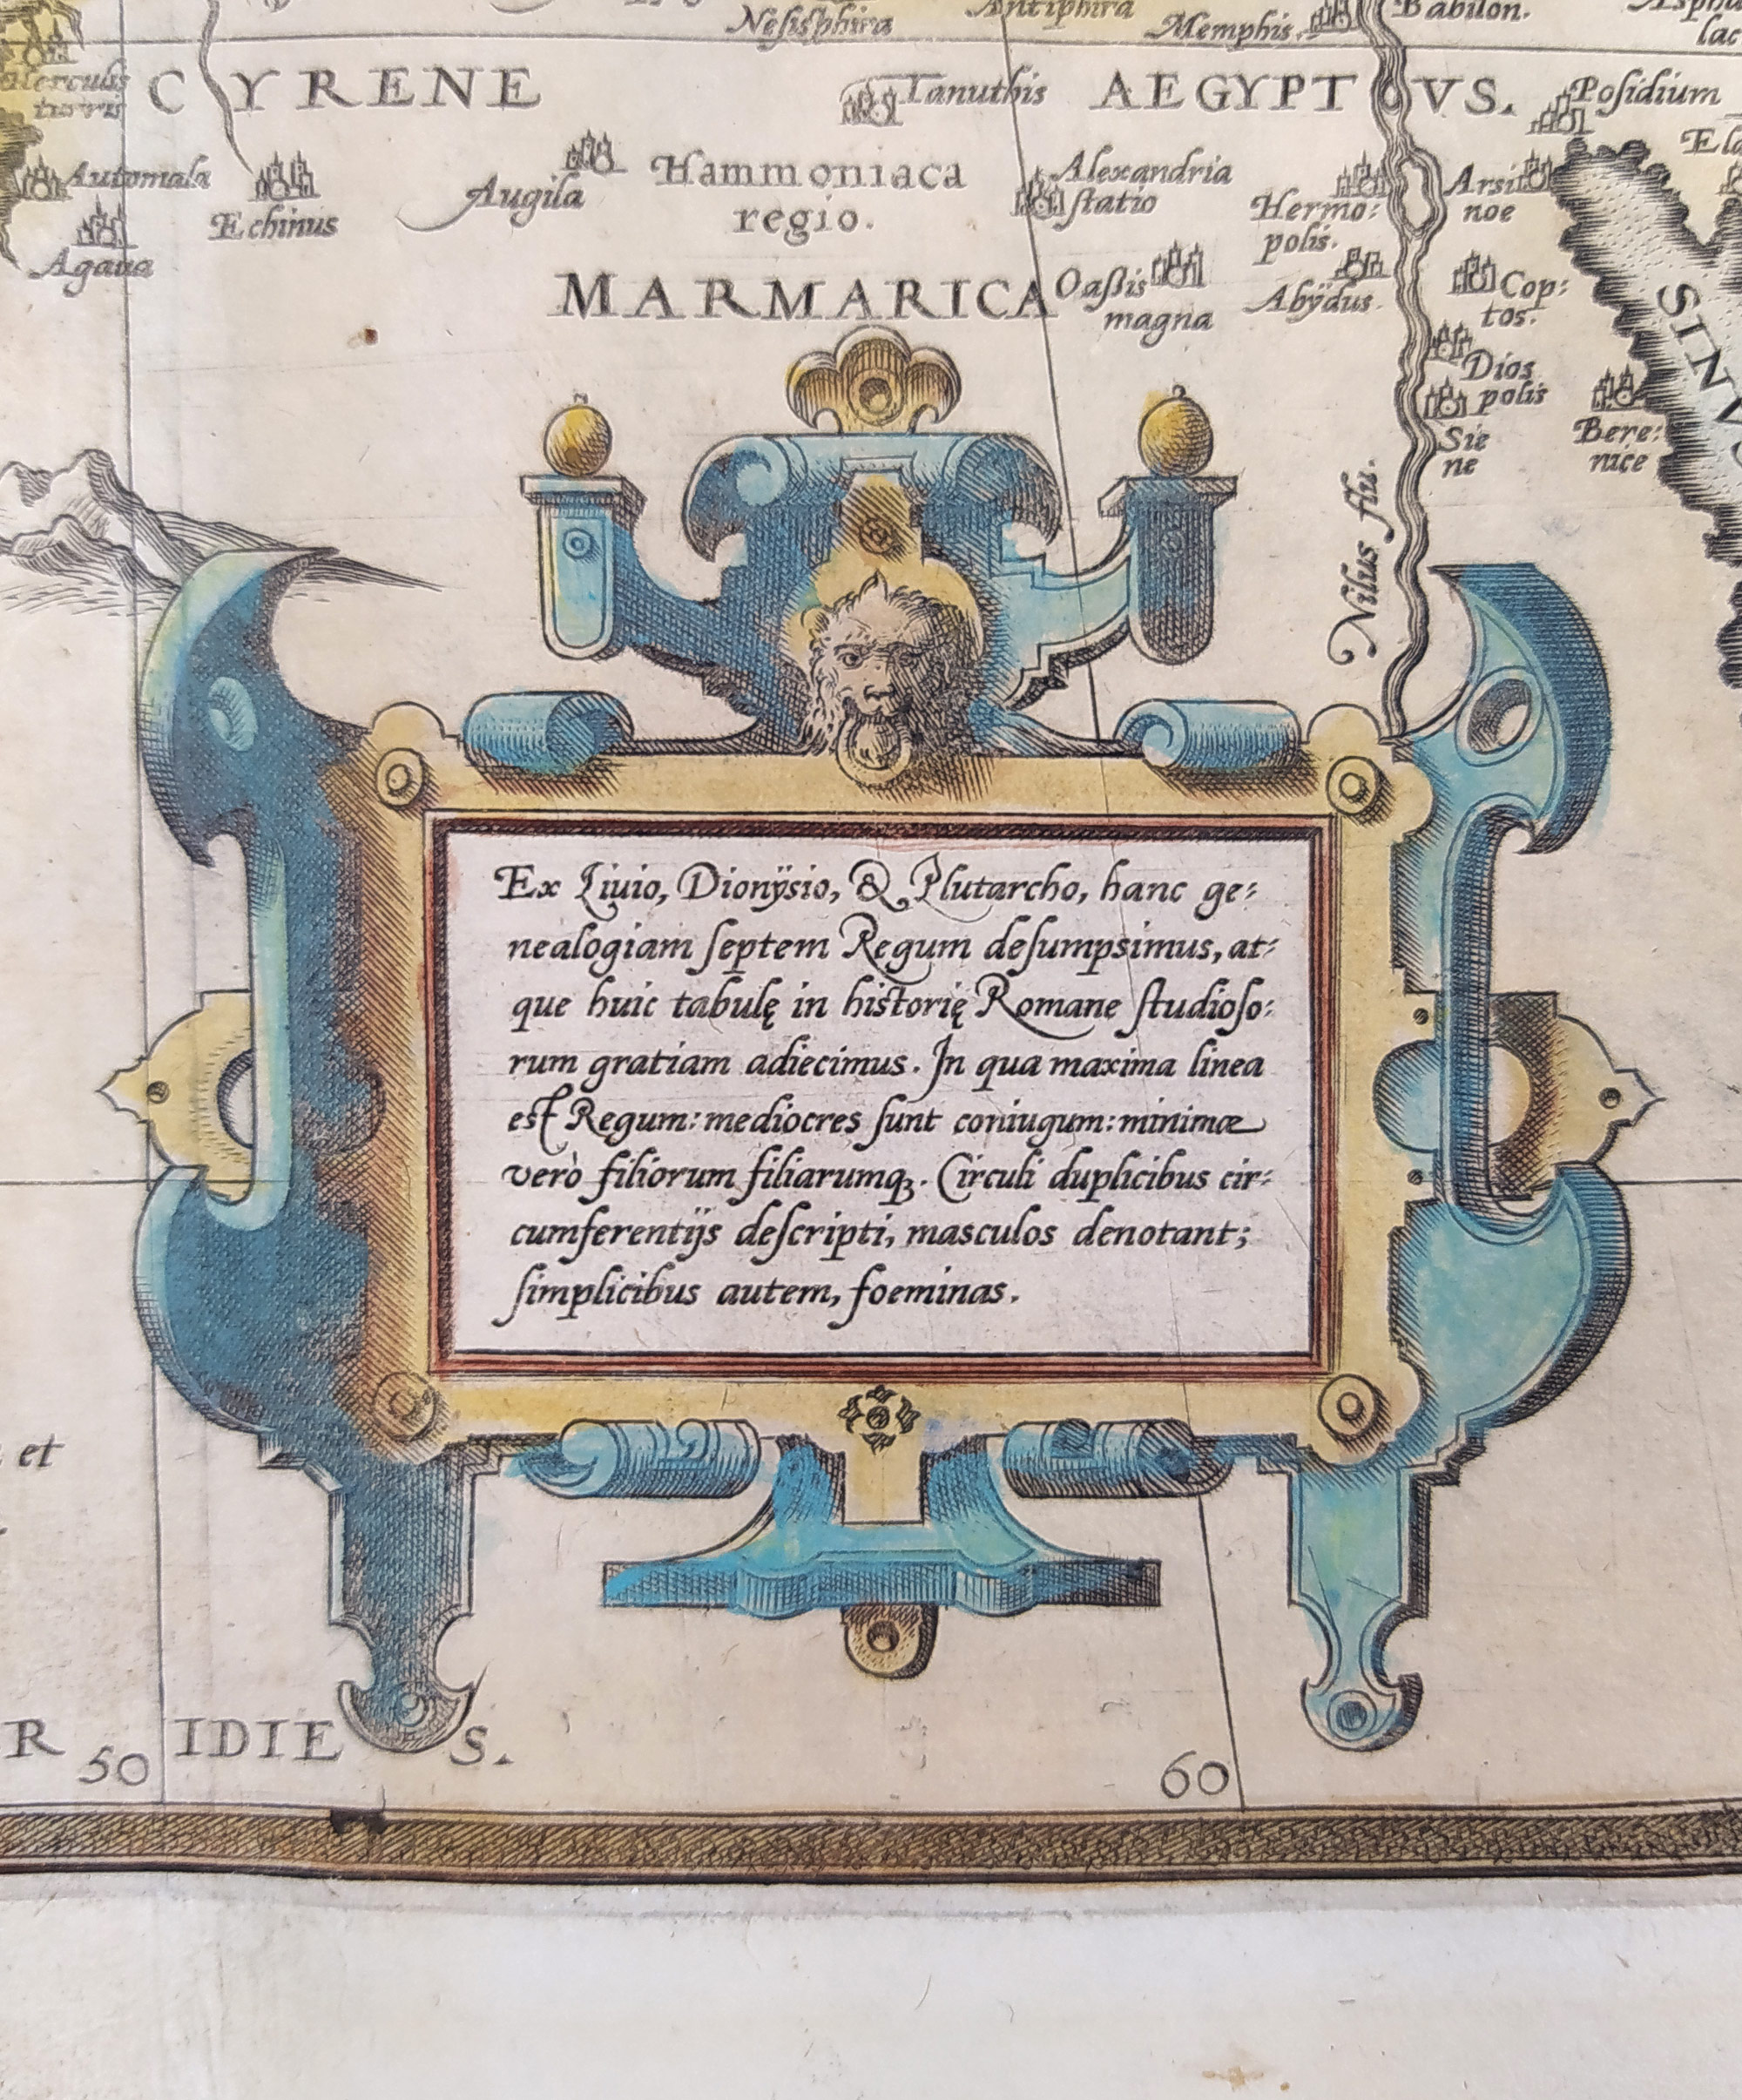 Nesisphira
Antiphira
Memphis.
Babilon.
lac
Herculis
turris
CYRENE
Tanuthis
AEGYPTVS.
Posidium
Automala
Echinus
Agaua
Augila
Hammoniaca
regio.
Alexandria
statio
Hermo:
polis.
Arsi
noe
MARMARICA
Oaſsis
magna
Abÿdus.
Cop:
tos.
Dios
polis
Sie
ne
Bere:
nice
SINV
Nilus flu.
Ex Liuio, Dionÿsio, & Plutarcho, hanc ge:
nealogiam ſeptem Regum deſumpsimus, at:
que huic tabulę in historię Romane ſtudioſo:
rum gratiam adiecimus. In qua maxima linea
est Regum: mediocres ſunt coniugum: minimæ
verò filiorum filiarumqꝫ. Circuli duplicibus cir:
cumferentijs deſcripti, masculos denotant;
ſimplicibus autem, foeminas.
et
R IDIE S.
50
60